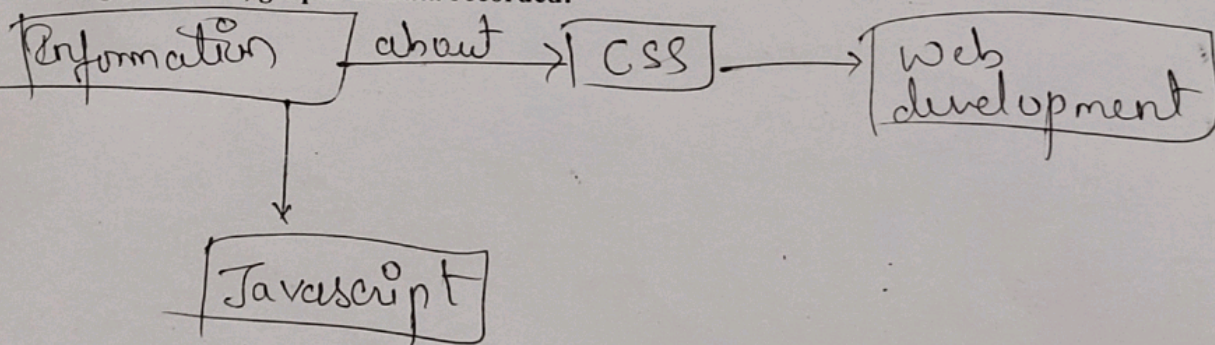 Information about CSS web
development
Javascript